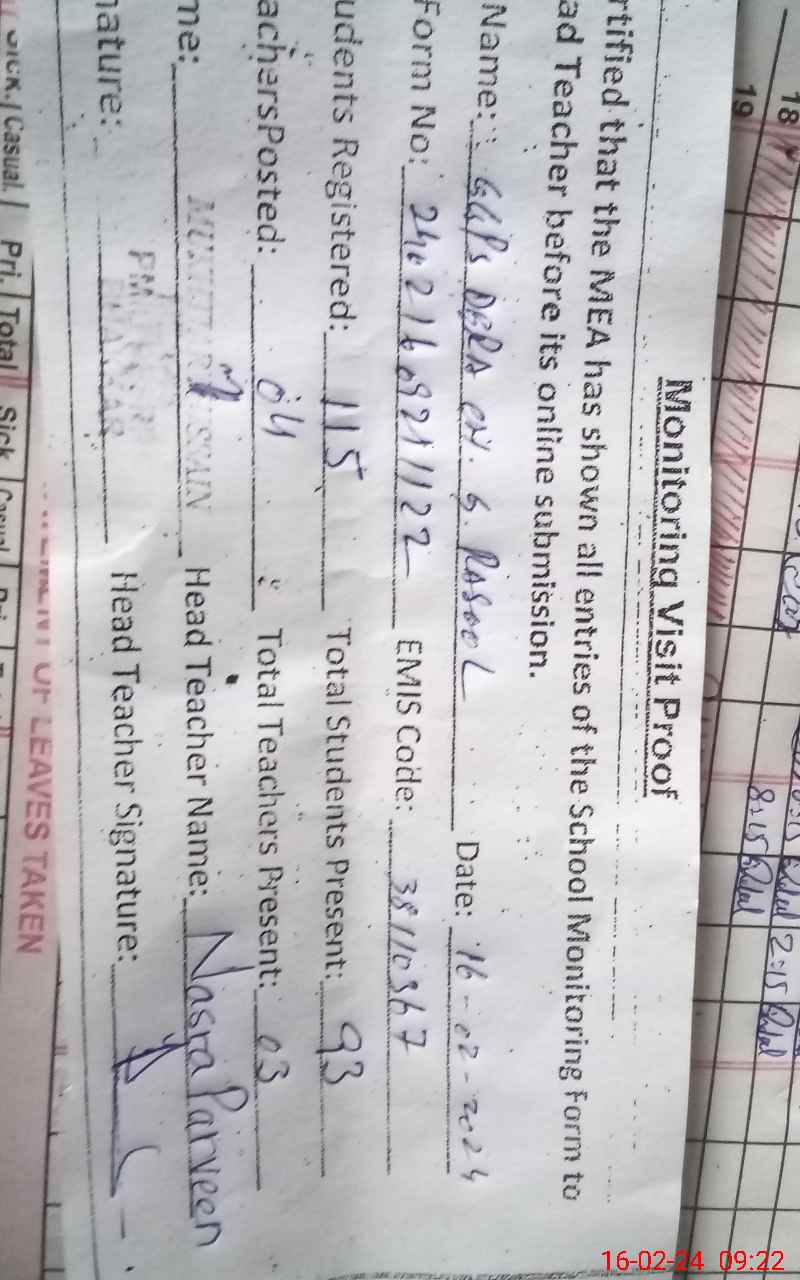 Monitoring Visit Proof
rtified that the MEA has shown all entries of the School Monitoring Form to
ad Teacher before its online submission.
Name: GGPS DERA CH. G. RASOOL Date: 16-02-2024
Form No: 24021609211122 EMIS Code: 38110367
udents Registered: 115 Total Students Present: 93
achersPosted: 04 Total Teachers Present: 03
me: SSAIN Head Teacher Name: Nasra Parveen
nature: Head Teacher Signature:
OF LEAVES TAKEN
Sick. Casual. Pri. Total Sick
18
19
8:15 2:15
16-02-24 09:22